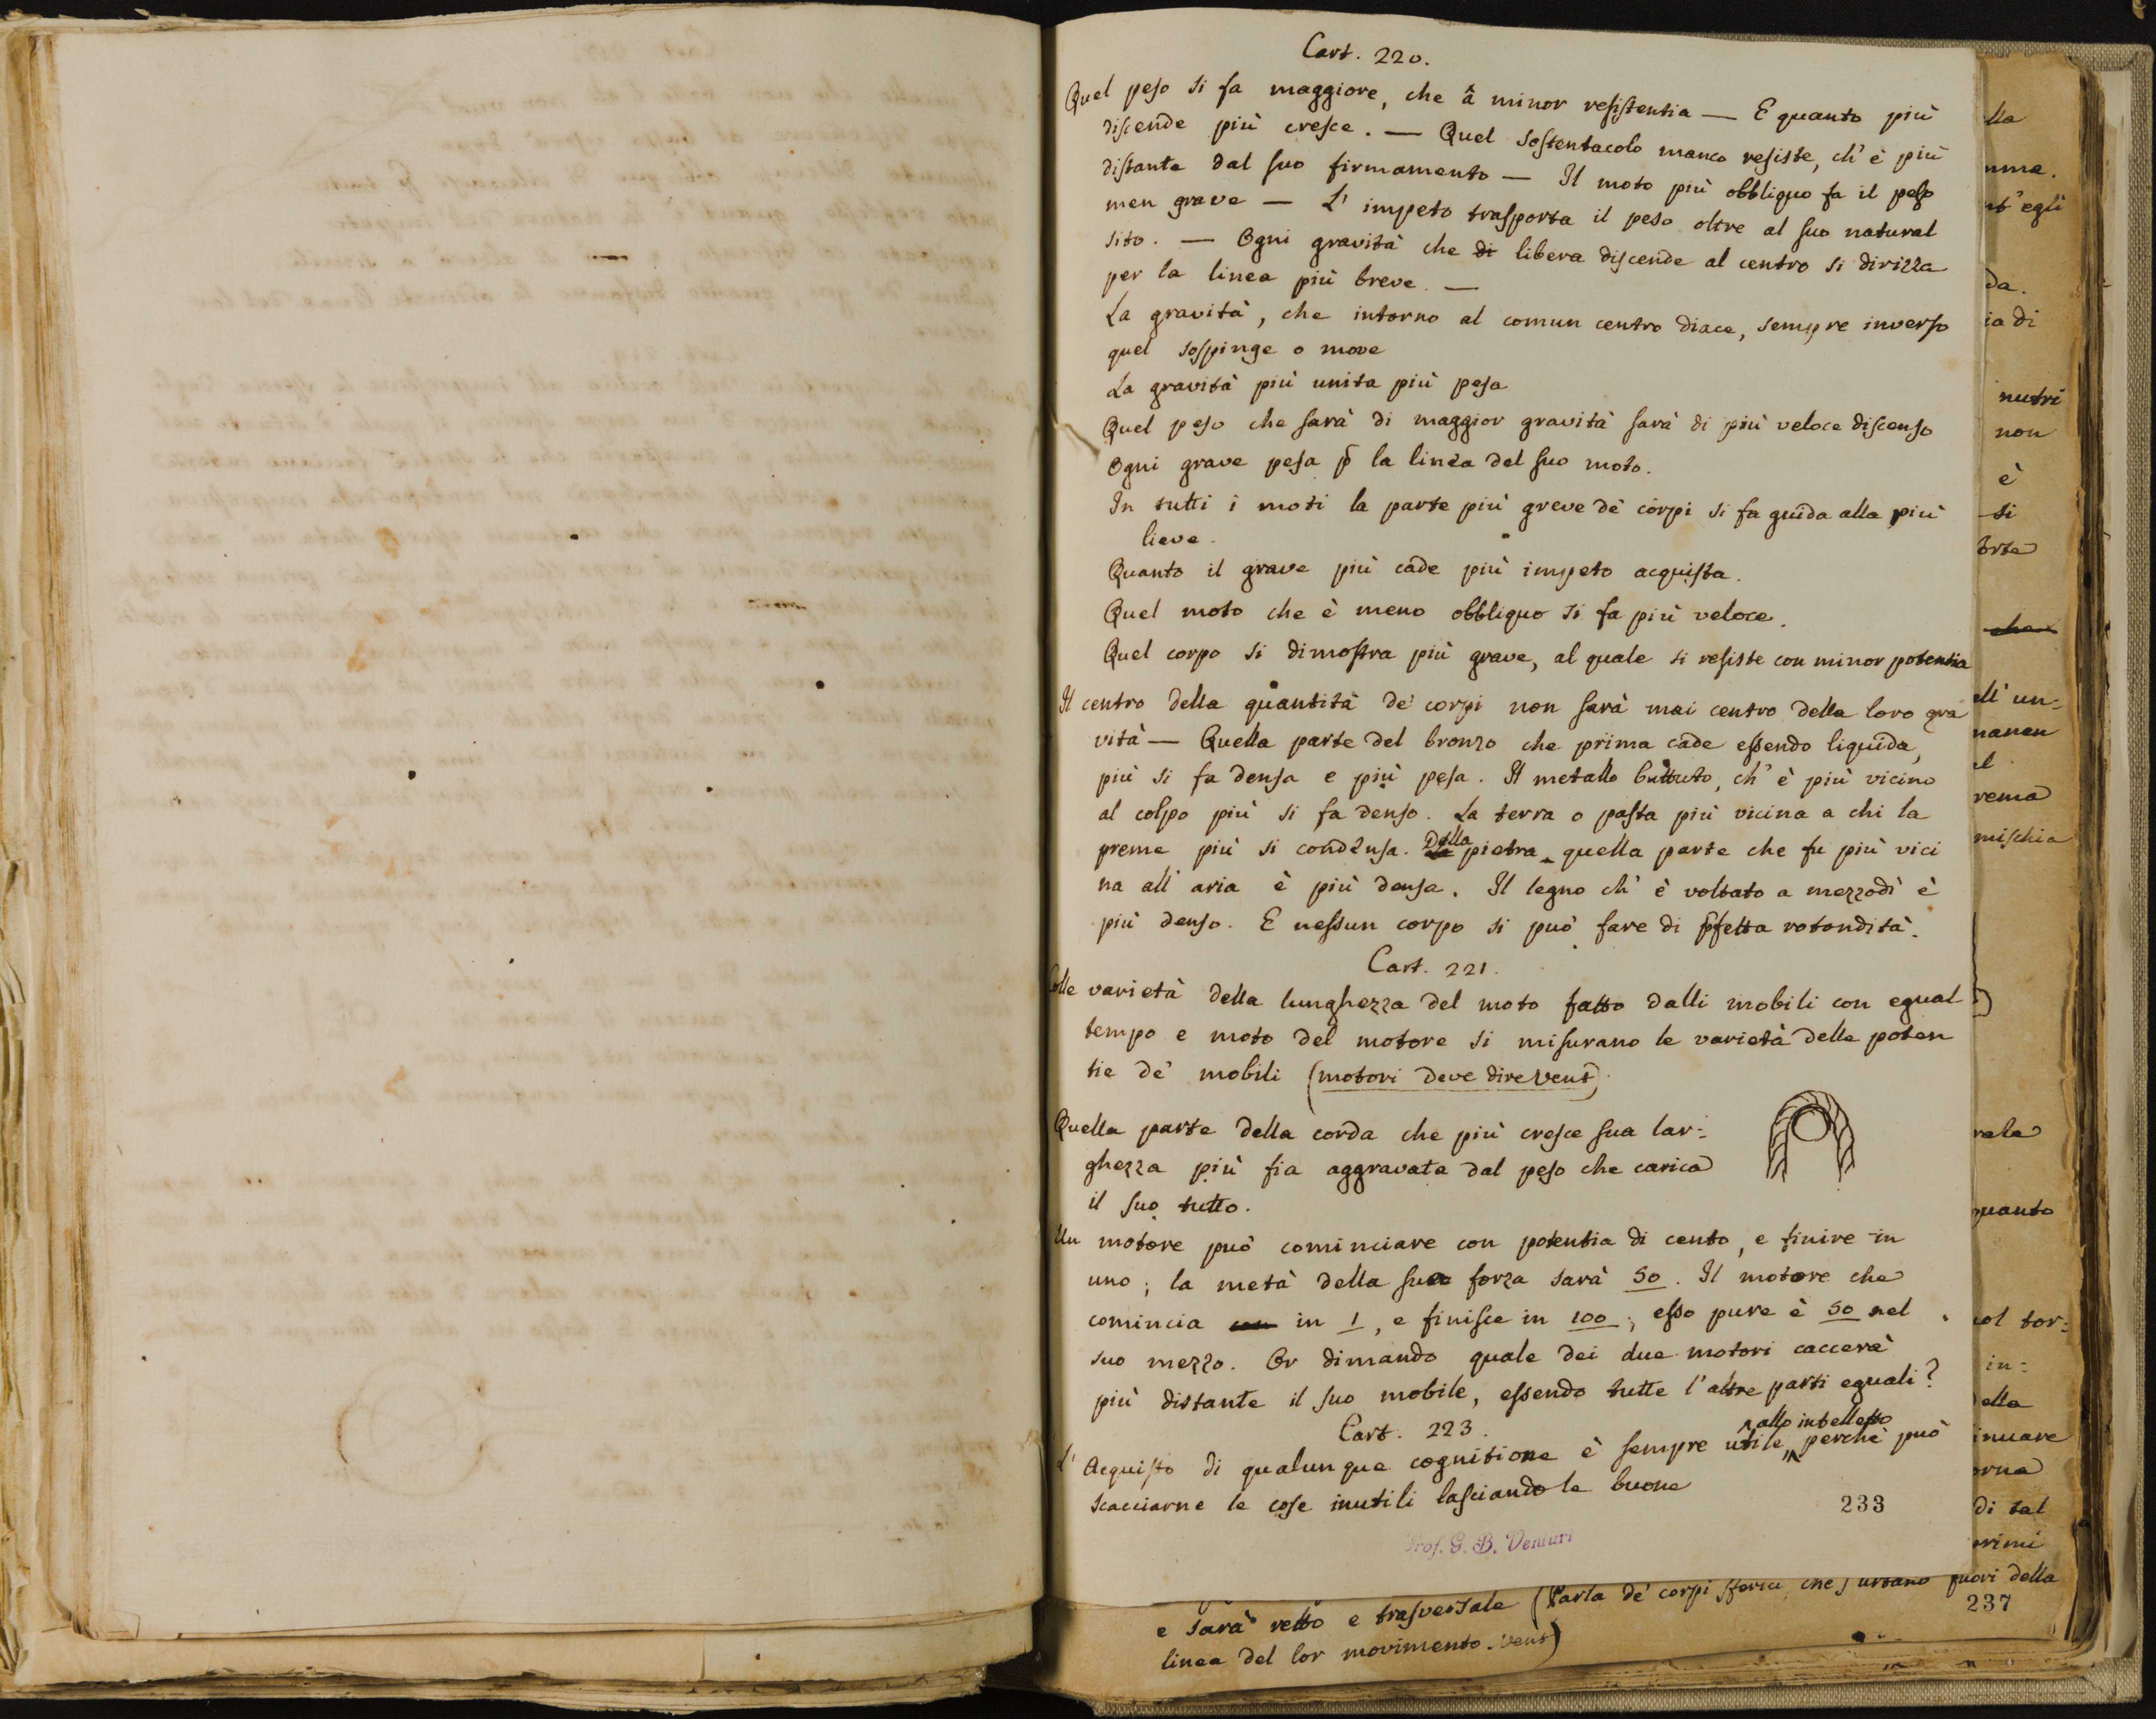 Cart. 220.
Quel peso si fa maggiore, che â minor resistentia — E quanto più
discende più cresce. — Quel sostentacolo manco resiste, ch'è più
distante dal suo firmamento — Il moto più obbliquo fa il peso
men grave — L'impeto trasporta il peso oltre al suo natural
sito. — Ogni gravità che di libera discende al centro si dirizza
per la linea più breve. —
La gravità, che intorno al comun centro diace, sempre inverso
quel sospinge o move
La gravità più unita più pesa
Quel peso che sarà di maggior gravità sarà di più veloce discenso
Ogni grave pesa p̄ la linea del suo moto.
In tutti i moti la parte più greve de' corpi si fa guida alla più
lieve.
Quanto il grave più cade più impeto acquista.
Quel moto che è meno obbliquo si fa più veloce.
Quel corpo si dimostra più grave, al quale si resiste con minor potentia
Il centro della quantità de' corpi non sarà mai centro della loro gra
vità — Quella parte del bronzo che prima cade essendo liquida,
più si fa densa e più pesa. Il metallo battuto, ch'è più vicino
al colpo più si fa denso. La terra o pasta più vicina a chi la
preme più si condensa. Della pietra quella parte che fu più vici
na all'aria è più densa. Il legno ch'è voltato a mezzodì è
più denso. E nessun corpo si può fare di p̄fetta rotondità.
Cart. 221.
Colle varietà della lunghezza del moto fatto dalli mobili con egual
tempo e moto del motore si misurano le varietà delle poten
tie de' mobili (motori deve dire Vent)
Quella parte della corda che più cresce sua lar=
ghezza più fia aggravata dal peso che carica
il suo tutto.
Un motore può cominciare con potentia di cento, e finire in
uno; la metà della sua forza sarà 50. Il motore che
comincia con in 1, e finisce in 100; esso pure è 50 nel
suo mezzo. Or dimando quale dei due motori caccerà
più distante il suo mobile, essendo tutte l'altre parti eguali?
Cart. 223.
allo intelletto
L'Acquisto di qualunque cognitione è sempre utile, perchè può
scacciarne le cose inutili lasciando le buone
233
Prof. G. B. Venturi
e sarà retto e trasversale (Parla de' corpi sferici che s'urtano fuori della
237
linea del lor movimento. Vent)
lla
mme.
nt'egli
da.
ia di
nutri
non
è
si
orte
che
ell'un=
nanen
el
rema
mischia
rale
quanto
col tor=
in=
della
inuare
orna
di tal
primi